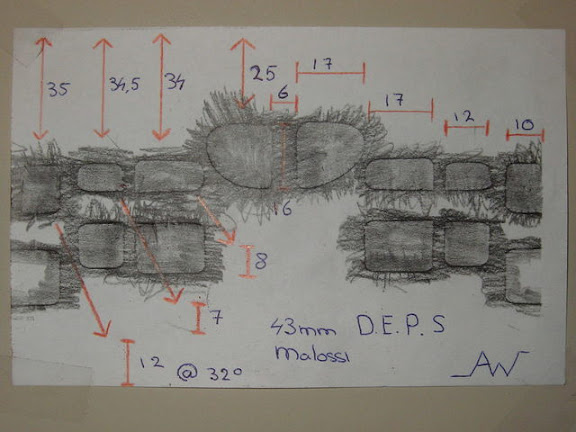 17
35 34,5 34 25 6 17 12 10
16
8
7
43mm D.E.P.S
Malossi
12 @ 32°
AW